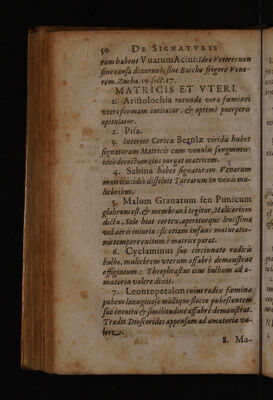 50 DE SIGNATVRIS
rum habent Vuarum Acini: Ideo Veteres non
sine causa dixerunt, sine Baccho frigere Vene-
rem. Zacha. 19. sect. 17.
MATRICIS ET VTERI.
1. Aristolochia rotunda vera fæminei
vteri formam imitatur, & optimè puerperis
opitulatur.
2. Pisa.
3. Interior Cortex Betulæ viridis habet
signaturam Matricis cum venulis sanguineis:
ideo decoctum eius purgat matricem.
4. Sabina habet signaturam Venarum
matricis: ideo dissoluit Tartarum in venis mu-
liebribus.
5. Malum Granatum seu Punicum
glabrum est, & membranâ tegitur, Malicorium
dicta, Sole hiat cortex, aperiturque leuissima
vel aëris iniuria: sic etiam infans maturatio-
nis tempore exitum è matrice parat.
6. Cyclaminus suo circinnato radicis
bulbo, muliebrem vterum affabrè demonstrat
effigiatum: Theophrastus eius bulbum ad a-
matoria valere dixit.
7. Leontopetalon cuius radix fæmina
pubem lanuginoso mollique flecto pubescentem
suo intuitu & similitudine affabrè demonstrat.
Tradit Dioscorides appensam ad amatoria va-
lere.
8. Ma-